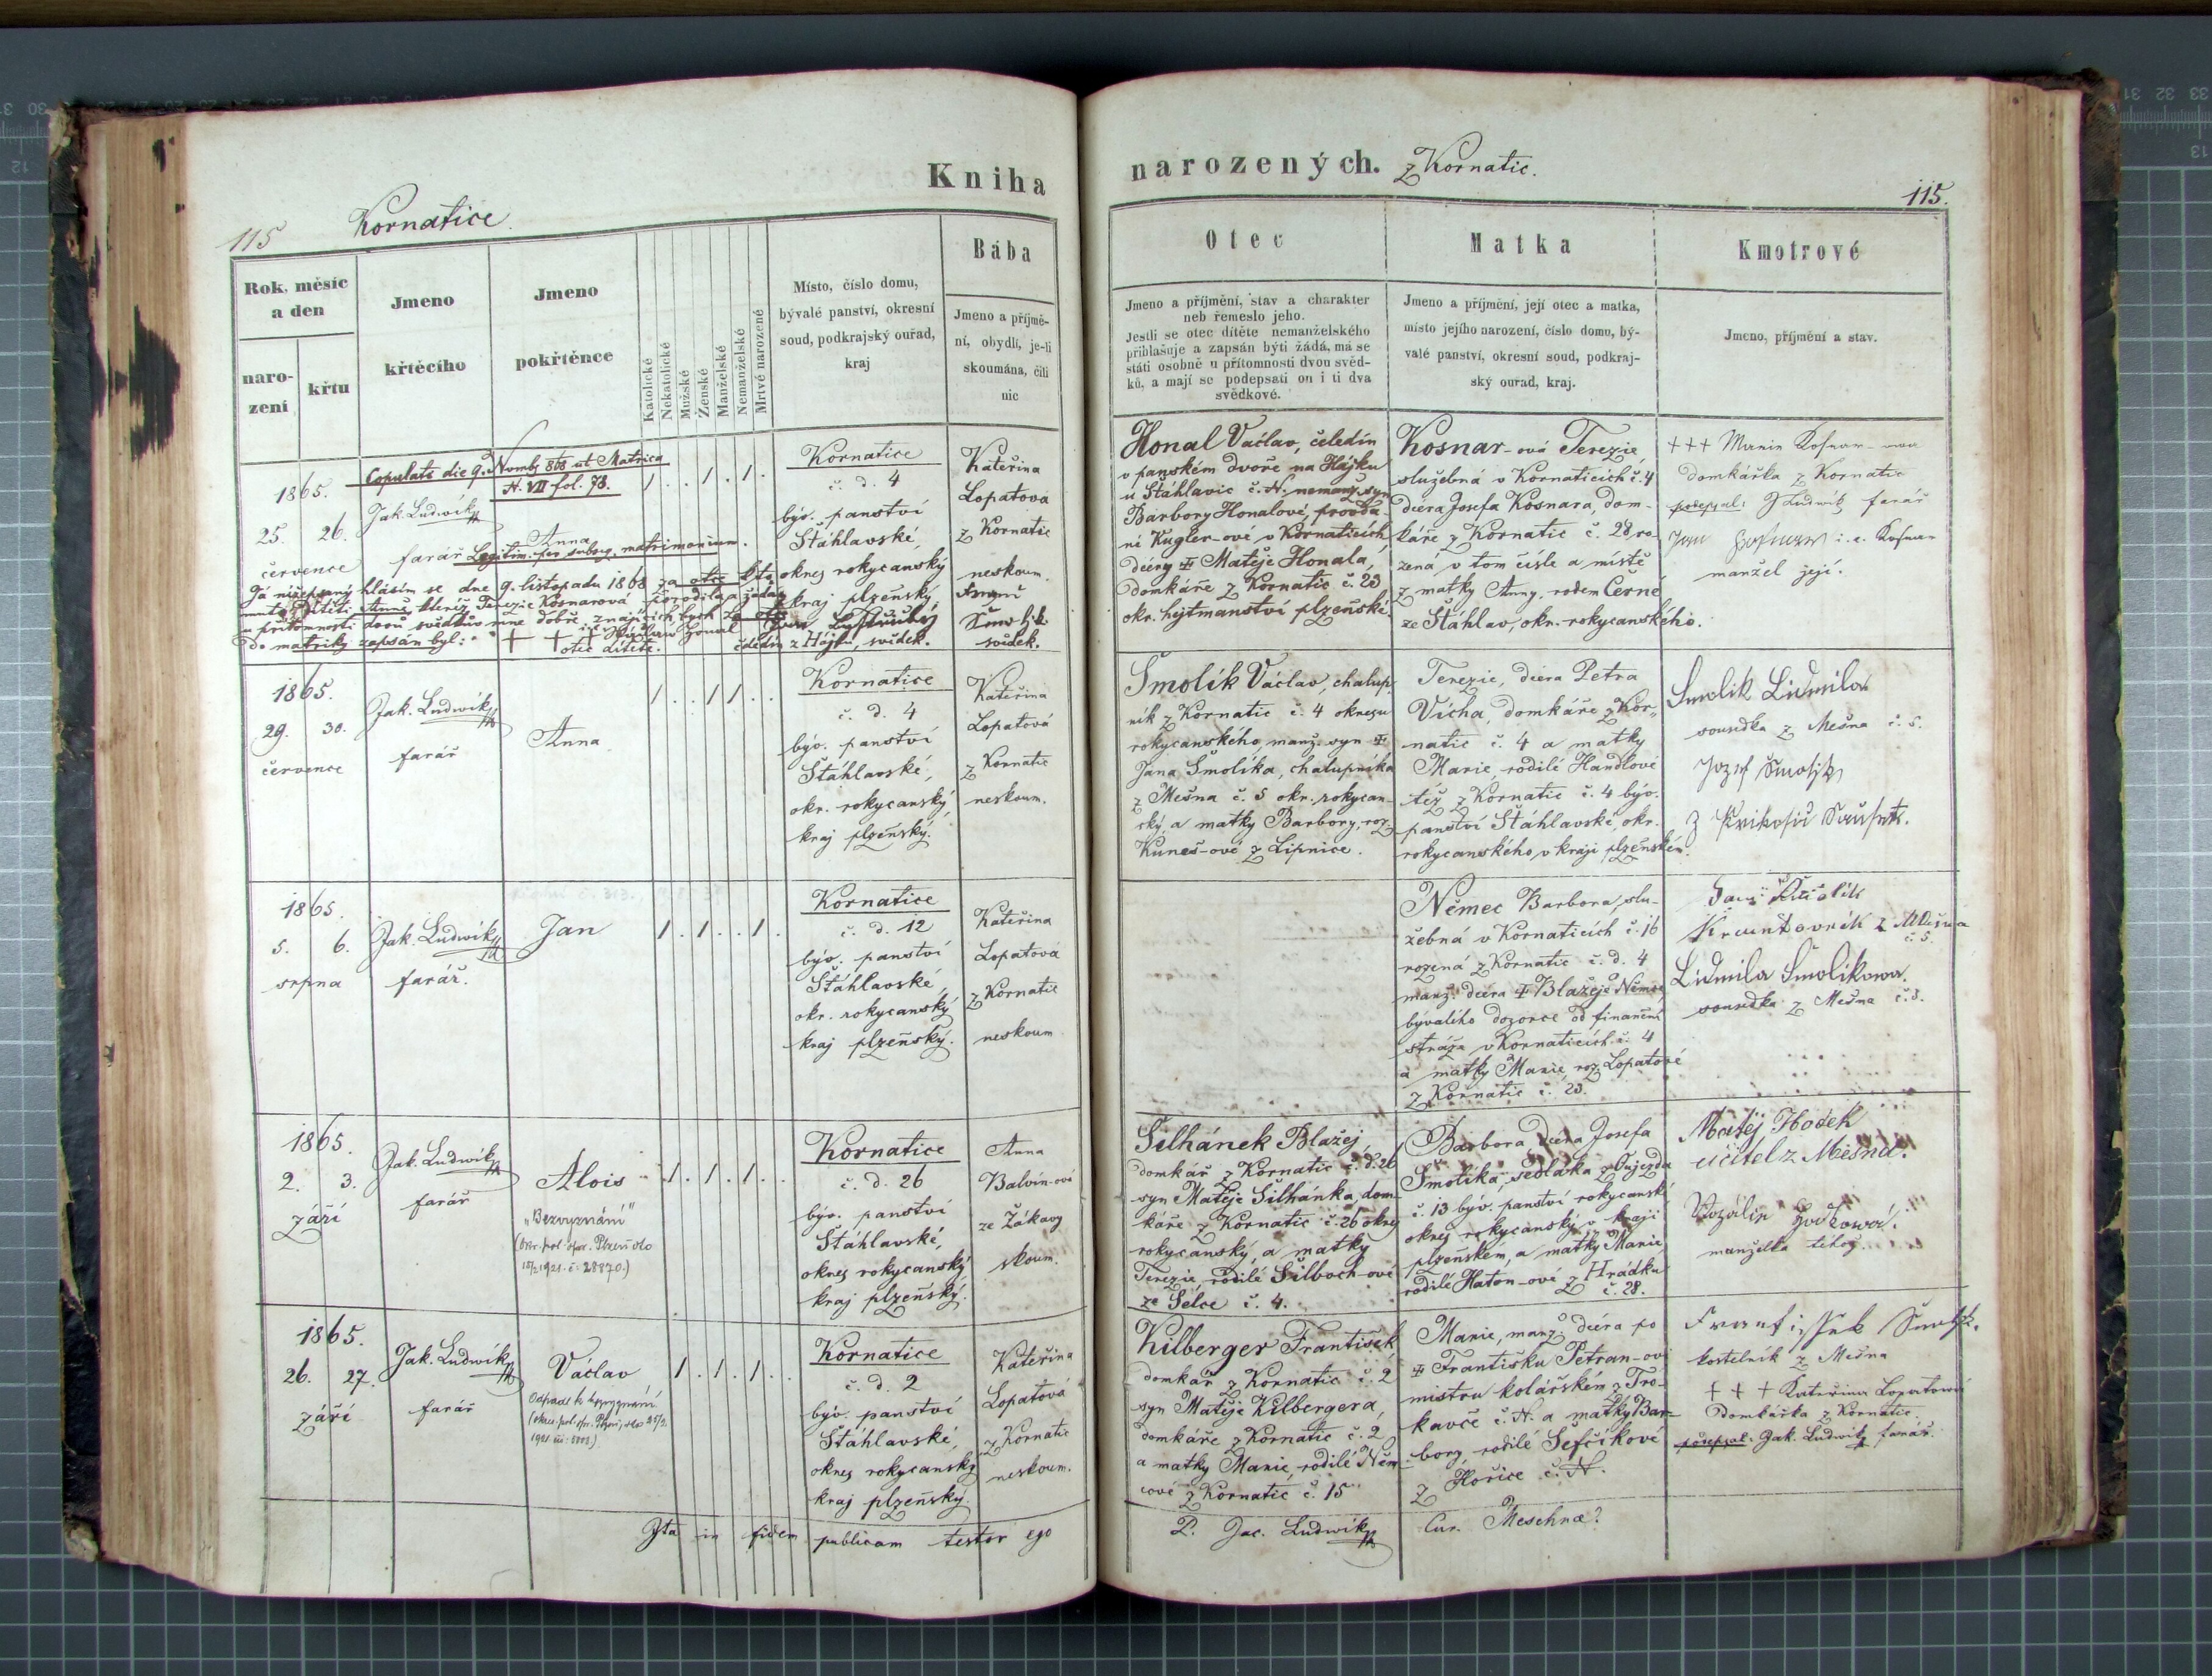 Kniha
115 Kornatice.
Rok, měsíc
a den
naro-
zení
křtu
Jmeno
křtěcího
Jmeno
pokřtěnce
Katolické
Nekatolické
Mužské
Ženské
Manželské
Nemanželské
Mrtvé narozené
Místo, číslo domu,
bývalé panství, okresní
soud, podkrajský ouřad,
kraj
Bába
Jmeno a příjmě-
ní, obydlí, je-li
skoumána, čili
nic
Copulats die 9. Nvmb. 868 ut Matrica
N. VII fol. 78.
1865.
25. 26.
července
Jak. Ludwik
farář
Anna
Legitim. per subseq. matrimonium.
1 . . 1 . 1 .
Kornatice
č. d. 4
býv. panství
Štáhlavské,
okres rokycanský
kraj plzeňský
Kateřina
Lopatova
z Kornatic
neskoum.
Já nížepsaný hlásím se dne 9. listopadu 1868 za otce k to-
muto dítěti Anně, kteréž Terezie Kosnarová zorodila, a žádám
u přítomnosti dvou svědkův mne dobře znajících, bych za otce
do matriky zapsán byl:
+ + + Václav Honal
otec dítěte.
čeledín z Hájku, svědek.
Šmolík
svědek.
1865.
29. 30.
července
Jak. Ludwik
farář
Anna
1 . . 1 1 . .
Kornatice
č. d. 4
býv. panství
Štáhlavské,
okr. rokycanský,
kraj plzeňský.
Kateřina
Lopatová
z Kornatic
neskoum.
1865.
5. 6.
srpna
Jak. Ludwik
farář.
Jan
1 . 1 . . 1 .
Kornatice
č. d. 12
býv. panství
Štáhlavské,
okr. rokycanský
kraj plzeňský.
Kateřina
Lopatová
z Kornatic
neskoum
1865.
2. 3.
září
Jak. Ludwik
farář
Alois
"Bezvyznání"
(Okr. pol. spr. Plzeň dto
15/2 1921. č. 28870.)
1 . 1 . 1 . .
Kornatice
č. d. 26
býv. panství
Štáhlavské,
okres rokycanský
kraj plzeňský.
Anna
Balvín-ová
ze Žákavy
skoum.
1865.
26. 27.
září
Jak. Ludwik
farář
Václav
Odpadl k bezvyznání.
(okres. pol. spr. Plzeň, dto 25/2
1921
1 . 1 . 1 . .
Kornatice
č. d. 2
býv. panství
Štáhlavské,
okres rokycanský
kraj plzeňský.
Kateřina
Lopatová
z Kornatic
neskoum.
Ita in fidem publicam testor ego
narozených. z Kornatic.
115.
Otec
Jmeno a příjmění, stav a charakter
neb řemeslo jeho.
Jestli se otec dítěte nemanželského
přihlašuje a zapsán býti žádá, má se
státi osobně u přítomnosti dvou svěd-
ků, a mají se podepsati on i ti dva
svědkové.
Matka
Jmeno a příjmění, její otec a matka,
místo jejího narození, číslo domu, bý-
valé panství, okresní soud, podkraj-
ský ouřad, kraj.
Kmotrové
Jmeno, příjmění a stav.
Honal Václav, čeledín
v panském dvoře na Hájku
u Štáhlavic č. N. nemanž. syn
Barbory Honalové, provda-
né Kugler-ové v Kornaticích
dcery ╪ Matěje Honala,
domkáře z Kornatic č. 23
okr. hejtmanství plzeňské.
Kosnar-ová Terezie,
služebná v Kornaticích č. 4
dcera Josefa Kosnara, dom-
káře z Kornatic č. 28 ro-
zená v tom čísle a místě
z matky Anny, rodem Černé
ze Štáhlav, okr. rokycanského.
+++ Marie Kosnar-owa
domkářka z Kornatic
podepsal: J Ludwik farář
Jan Kosnar i. e. Kosnar
manžel její.
Smolík Václav, chalup-
ník z Kornatic č. 4 okresu
rokycanského, manž. syn ╪
Jana Smolíka, chalupníka
z Mešna č. 5 okr. rokycan-
ský, a matky Barbory, roz.
Kuneš-ové z Lipnice.
Terezie, dcera Petra
Vícha, domkáře z Kor-
natic č. 4 a matky
Marie, rodilé Handlové
též z Kornatic č. 4 býv.
panství Štáhlavské, okr.
rokycanského v kraji plzeňském.
Smolik Lidmila
sousedka z Mešna č. 5.
Jozef Smolik
Němec Barbora, slu-
žebná v Kornaticích č. 16
rozená z Kornatic č. d. 4
manž. dcera ╪ Blažeje Němce,
bývalého dozorce od finanční
stráže v Kornaticích č. 4
a matky Marie, roz. Lopatové
z Kornatic č. 23.
Kruntovník z Mešna
č. 5.
Lidmila Smolikowa
sousedka z Mešna č. 5.
Silhánek Blažej,
domkář z Kornatic č. d. 26
syn Matěje Silhánka, dom-
káře z Kornatic č. 26 okres
rokycanský, a matky
Terezie, rodilé Silboch-ové
ze Sélce č. 4.
Barbora dcera Josefa
Smolíka, sedláka z Oujezda
č. 13 býv. panství rokycanské
okres rokycanský v kraji
plzeňském, a matky Marie,
rodilé Haton-ové z Hrádku
č. 28.
Matěj Hodek
učitel z Mešna.
Rozálie Hodkowá
manželka téhož
Kilberger František
domkář z Kornatic č. 2
syn Matěje Kilbergera,
domkáře z Kornatic č. 2
a matky Marie, rodilé Něm-
cové z Kornatic č. 15
Marie, manž. dcera po
╪ Františku Petran-ovi
mistru kolářském z Tro-
kavče č. N. a matky Bar-
bory, rodilé Šefčíkové
z Hořice č. N.
Frantisek Smolik.
kostelník z Mešna
+ + + Kateřina Lopatová
Domkářka z Kornatic.
podepsal: Jak. Ludwik farář.
P. Jac. Ludwik Cur. Meschnæ.